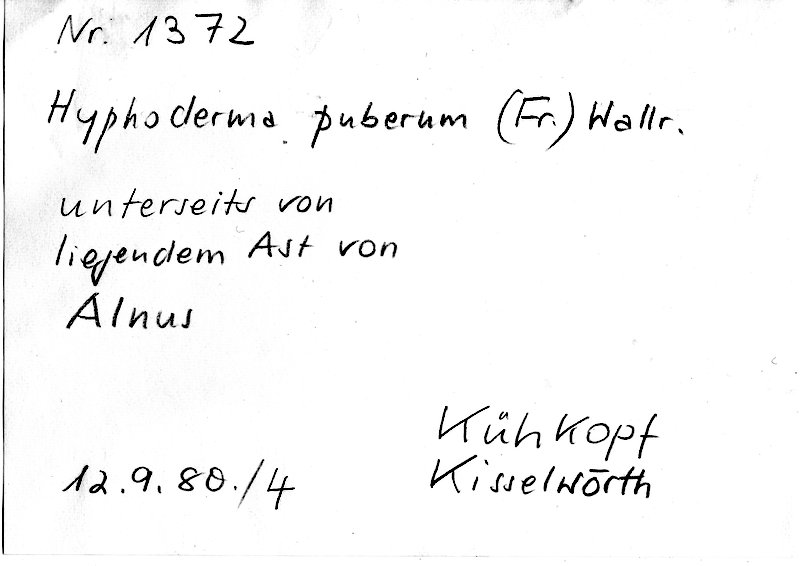 Nr. 1372
Hyphoderma puberum (Fr.) Wallr.
unterseits von
liegendem Ast von
Alnus
Kühkopf
12.9.80./4 Kisselwörth